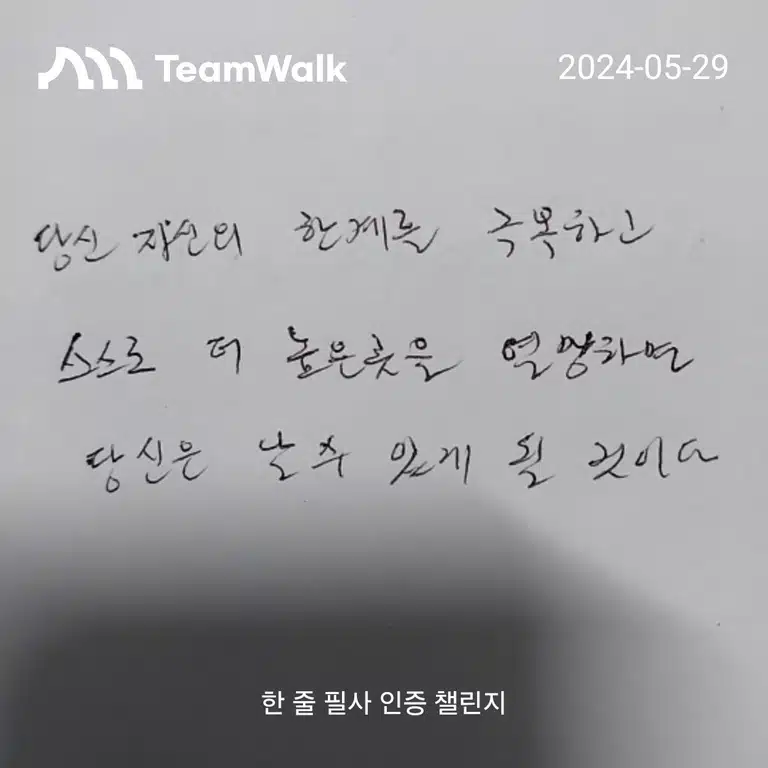 TeamWalk
2024-05-29
당신 자신의 한계를 극복하고
스스로 더 높은곳을 열망하면
당신은 날 수 있게 될 것이다
한 줄 필사 인증 챌린지